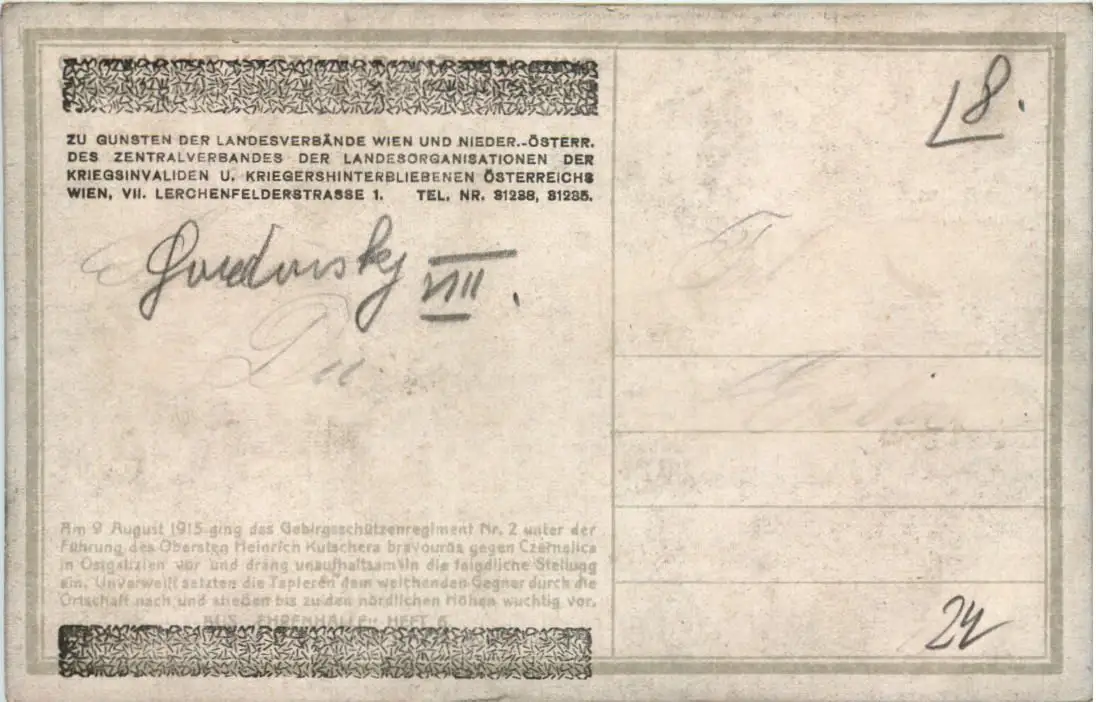 ZU GUNSTEN DER LANDESVERBÄNDE WIEN UND NIEDER.-ÖSTERR.
DES ZENTRALVERBANDES DER LANDESORGANISATIONEN DER
KRIEGSINVALIDEN U. KRIEGERSHINTERBLIEBENEN ÖSTERREICHS
WIEN, VII. LERCHENFELDERSTRASSE 1. TEL. NR. 31288, 31285.
8.
VIII.
Am 9 August 1915 ging das Gebirgsschützenregiment Nr. 2 unter der
Führung des Obersten Heinrich Kutschera bravourös gegen Czernelica
in Ostgalizien vor und drang unaufhaltsam in die feindliche Stellung
ein. Unverweilt setzten die Tapferen dem weichenden Gegner durch die
Ortschaft nach und stießen bis zu den nördlichen Höhen wuchtig vor.
AUS „EHRENHALLE" HEFT 6.
24